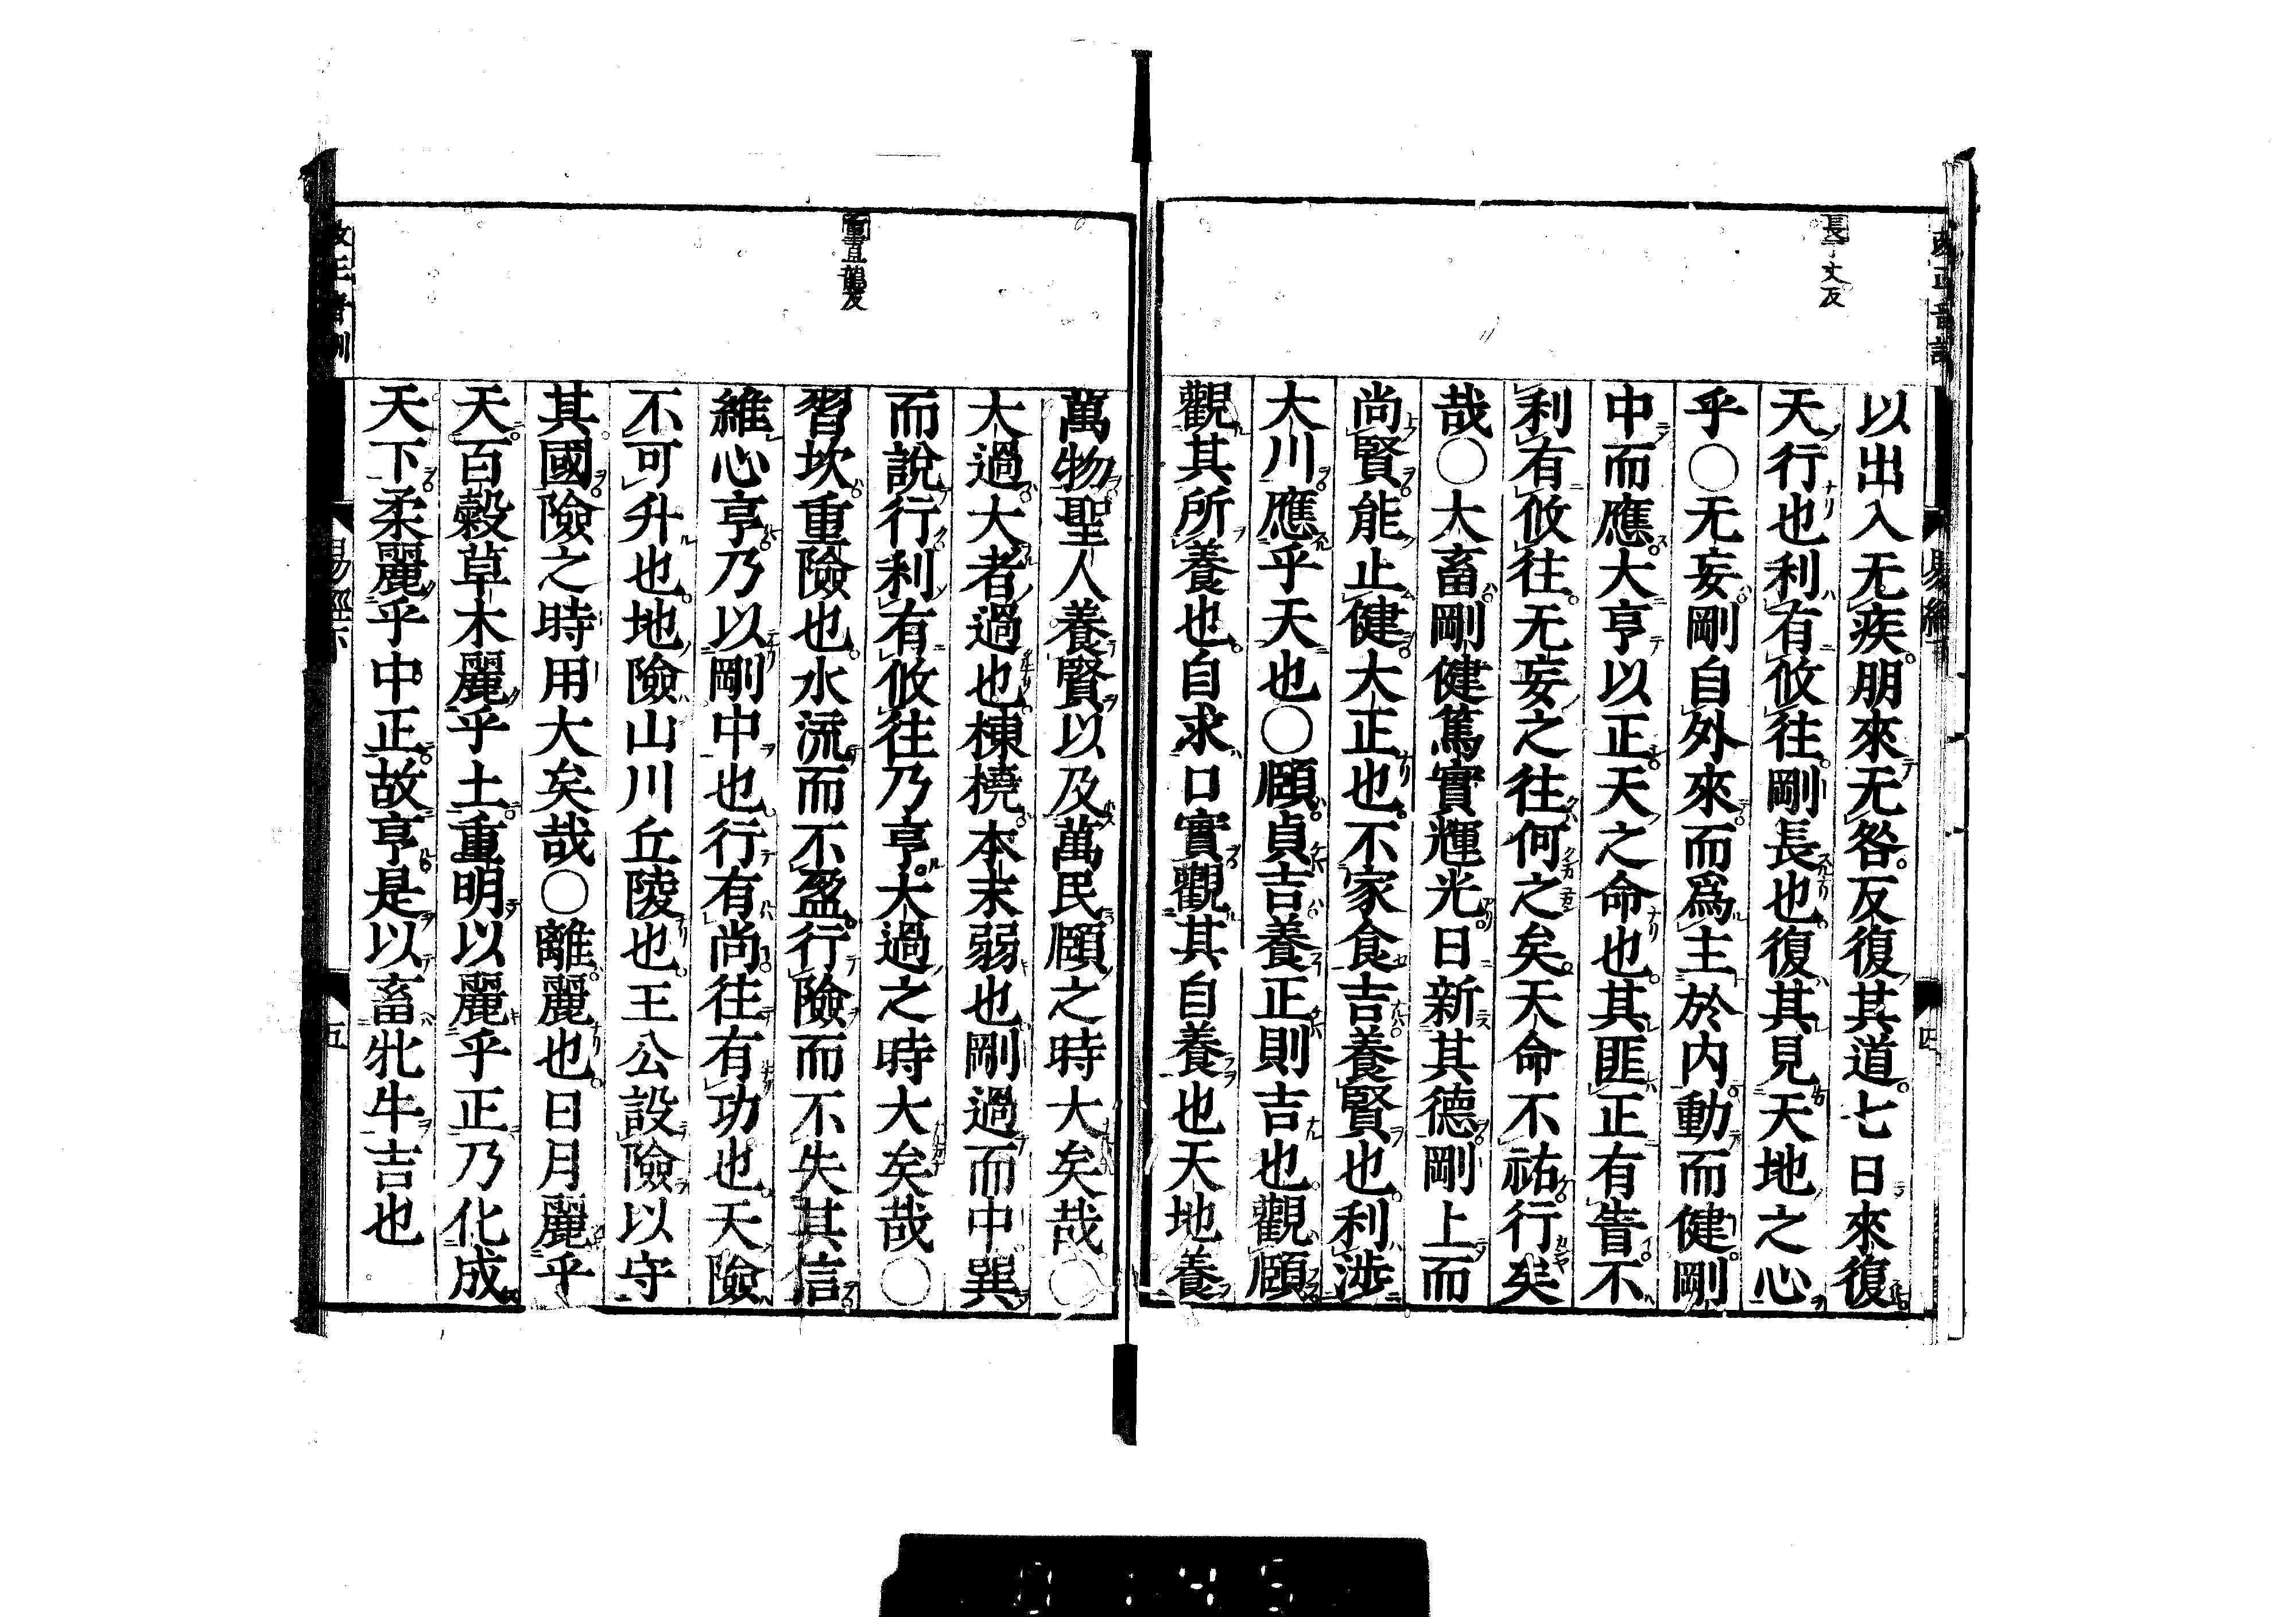 長丁丈反
以出入无疾朋來无咎反復其道七日來復
天行也利有攸往剛長也復其見天地之心
乎○无妄剛自外來而爲主於内動而健剛
中而應大亨以正天之命也其匪正有眚不
利有攸往无妄之往何之矣天命不祐行矣
哉○大畜剛健篤實輝光日新其德剛上而
尚賢能止健大正也不家食吉養賢也利涉
大川應乎天也○頤貞吉養正則吉也觀頤
觀其所養也自求口實觀其自養也天地養
重直龍反
萬物聖人養賢以及萬民頤之時大矣哉○
大過大者過也棟橈本末弱也剛過而中巽
而說行利有攸往乃亨大過之時大矣哉○
習坎重險也水流而不盈行險而不失其信
維心亨乃以剛中也行有尚往有功也天險
不可升也地險山川丘陵也王公設險以守
其國險之時用大矣哉○離麗也日月麗乎
天百穀草木麗乎土重明以麗乎正乃化成
天下柔麗乎中正故亨是以畜牝牛吉也
易經下
五